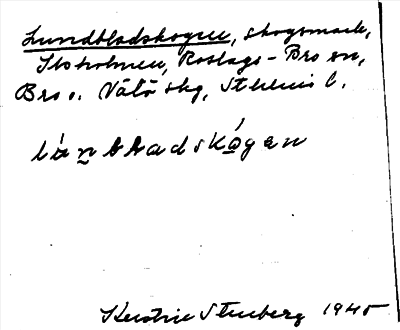 Lundbladskogen, skogsmark,
Stoholmen, Roslags-Bro sn,
Bro o. Vätö skg, Sthlms l.
Kerstin Stenberg 1945